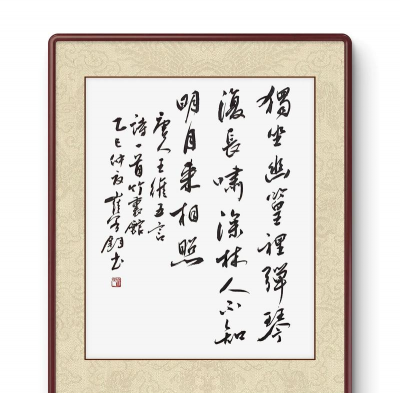 獨坐幽篁裡彈琴
復長嘯深林人不知
明月來相照
唐人王維五言
詩一首竹裏館
乙巳仲夏崔